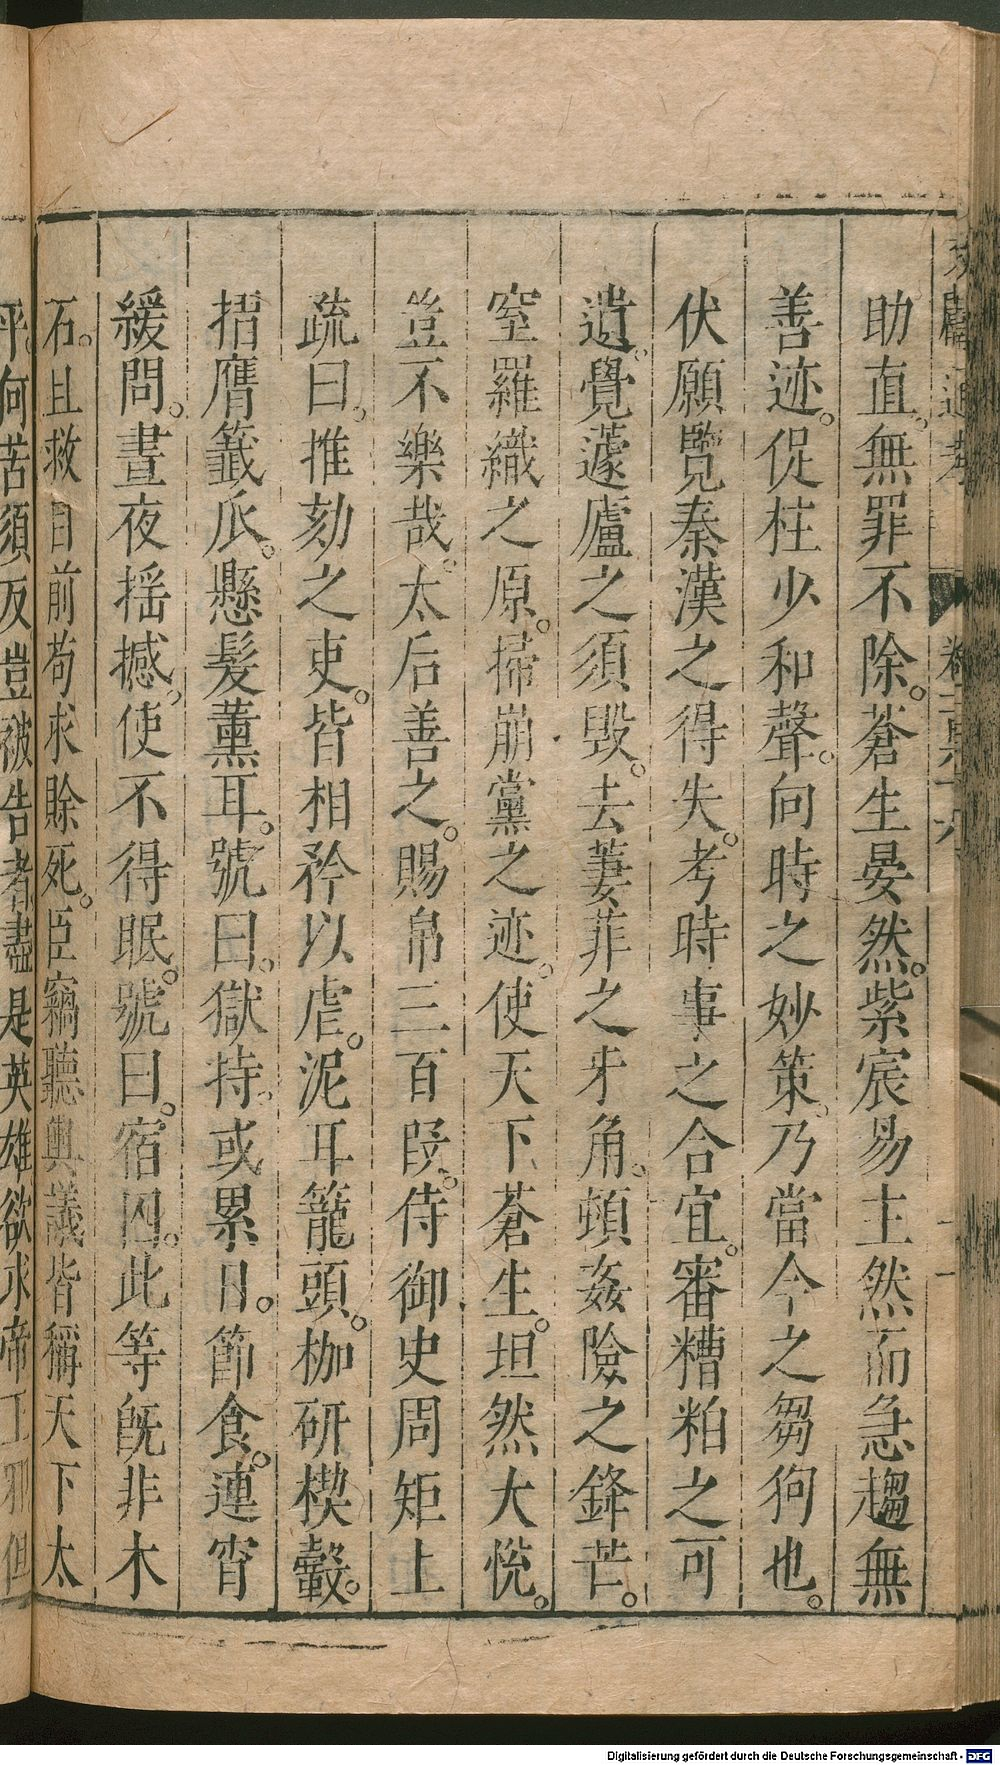 文獻通考 卷一百六十六
助直。無罪不除。蒼生晏然。紫宸易主然而急趨無
善迹。促柱少和聲。向時之妙策。乃當今之芻狗也。
伏願覽秦漢之得失。考時事之合宜。審糟粕之可
遺。覺蘧廬之須毀。去萋菲之牙角。頓姦險之鋒芒。
窒羅織之原。掃崩黨之迹。使天下蒼生。坦然大悅。
豈不樂哉。太后善之。賜帛三百段。侍御史周矩上
疏曰。推劾之吏。皆相矜以虐。泥耳籠頭。枷研楔轂。
摺膺籤爪。懸髮薰耳。號曰。獄持。或累日。節食。連宵
緩問。晝夜揺撼。使不得眠。號曰。宿囚。此等旣非木
石。且救目前苟求賒死。臣竊聽輿議皆稱天下太
平。何苦須反豈被告者盡是英雄欲求帝王邪但
Digitalisierung gefördert durch die Deutsche Forschungsgemeinschaft - DFG